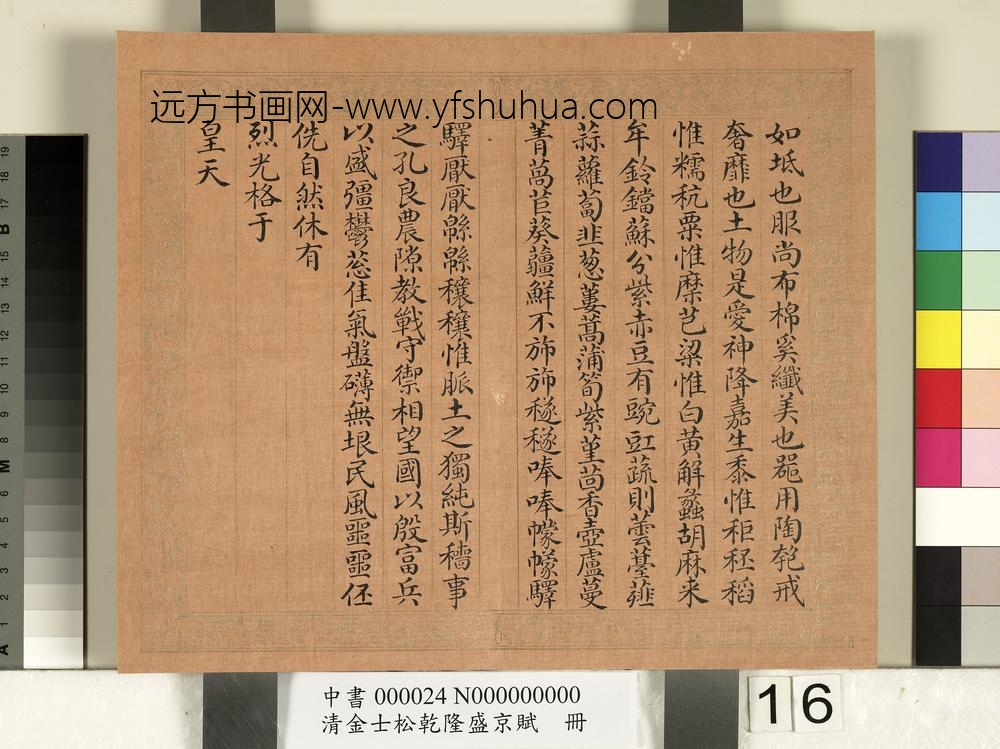 远方书画网-www.yfshuhua.com
如坻也服尚布棉奚纖美也器用陶匏戒
奢靡也土物是愛神降嘉生黍惟秬秠稻
惟糯秔粟惟穈芑粱惟白黃解蠡胡麻来
年鈴鐺蘇分紫赤豆有豌豇蔬則蕓薹薤
蒜蘿蔔韭葱蔞蒿蒲筍紫堇茴香壺盧蔓
菁萵苣葵蘁鮮不斾斾穟穟唪唪幪幪驛
驛厭厭緜緜穰穰惟脈土之獨純斯穡事
之孔良農隙教戰守禦相望國以殷富兵
以盛彊鬱葱佳氣盤礴無垠民風噩噩伾
侁自然休有
烈光格于
皇天
中書 000024 N000000000
清金士松乾隆盛京賦 冊
16
A 1 2 3 4 5 6 M 8 9 10 11 12 13 14 15 B 17 18 19